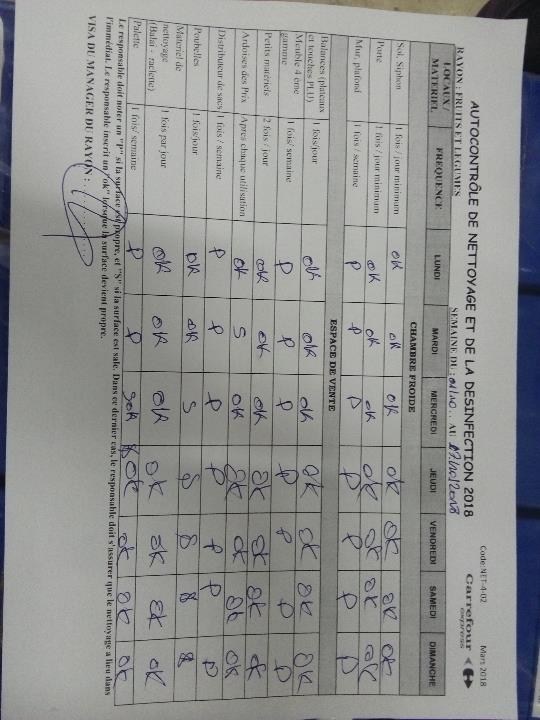 Code:NET-4-02 Mars 2018
Carrefour
express
AUTOCONTRÔLE DE NETTOYAGE ET DE LA DESINFECTION 2018
RAYON : FRUITS ET LEGUMES SEMAINE DU : AU
LOCAUX / MATERIEL FREQUENCE LUNDI MARDI MERCREDI JEUDI VENDREDI SAMEDI DIMANCHE
CHAMBRE FROIDE
Sol, Siphon 1 fois / jour minimum OK OK OK OK OK OK OK
Porte 1 fois / jour minimum OK OK OK OK OK OK OK
Mur, plafond 1 fois / semaine P P P P P P P
ESPACE DE VENTE
Balances (plateaux et touches PLU) 1 fois/jour OK OK OK OK OK OK OK
Meuble 4 ème gamme 1 fois/ semaine P P P P P P P
Petits matériels 2 fois / jour OK OK OK OK OK OK OK
Ardoises des Prix Apres chaque utilisation OK S OK OK OK OK OK
Distributeur de sacs 1 fois / semaine P P P P P P P
Poubelles 1 fois/jour OK OK S S S S S
Matériel de nettoyage (Balai - raclette) 1 fois par jour OK OK OK OK OK OK OK
Palette 1 fois/ semaine P P SOK SOK OK OK OK
Le responsable doit noter un "P" si la surface est propre, et "S" si la surface est sale. Dans ce dernier cas, le responsable doit s'assurer que le nettoyage a lieu dans
l'immédiat. Le responsable inscrit un "ok" lorsque la surface devient propre.
VISA DU MANAGER DU RAYON :